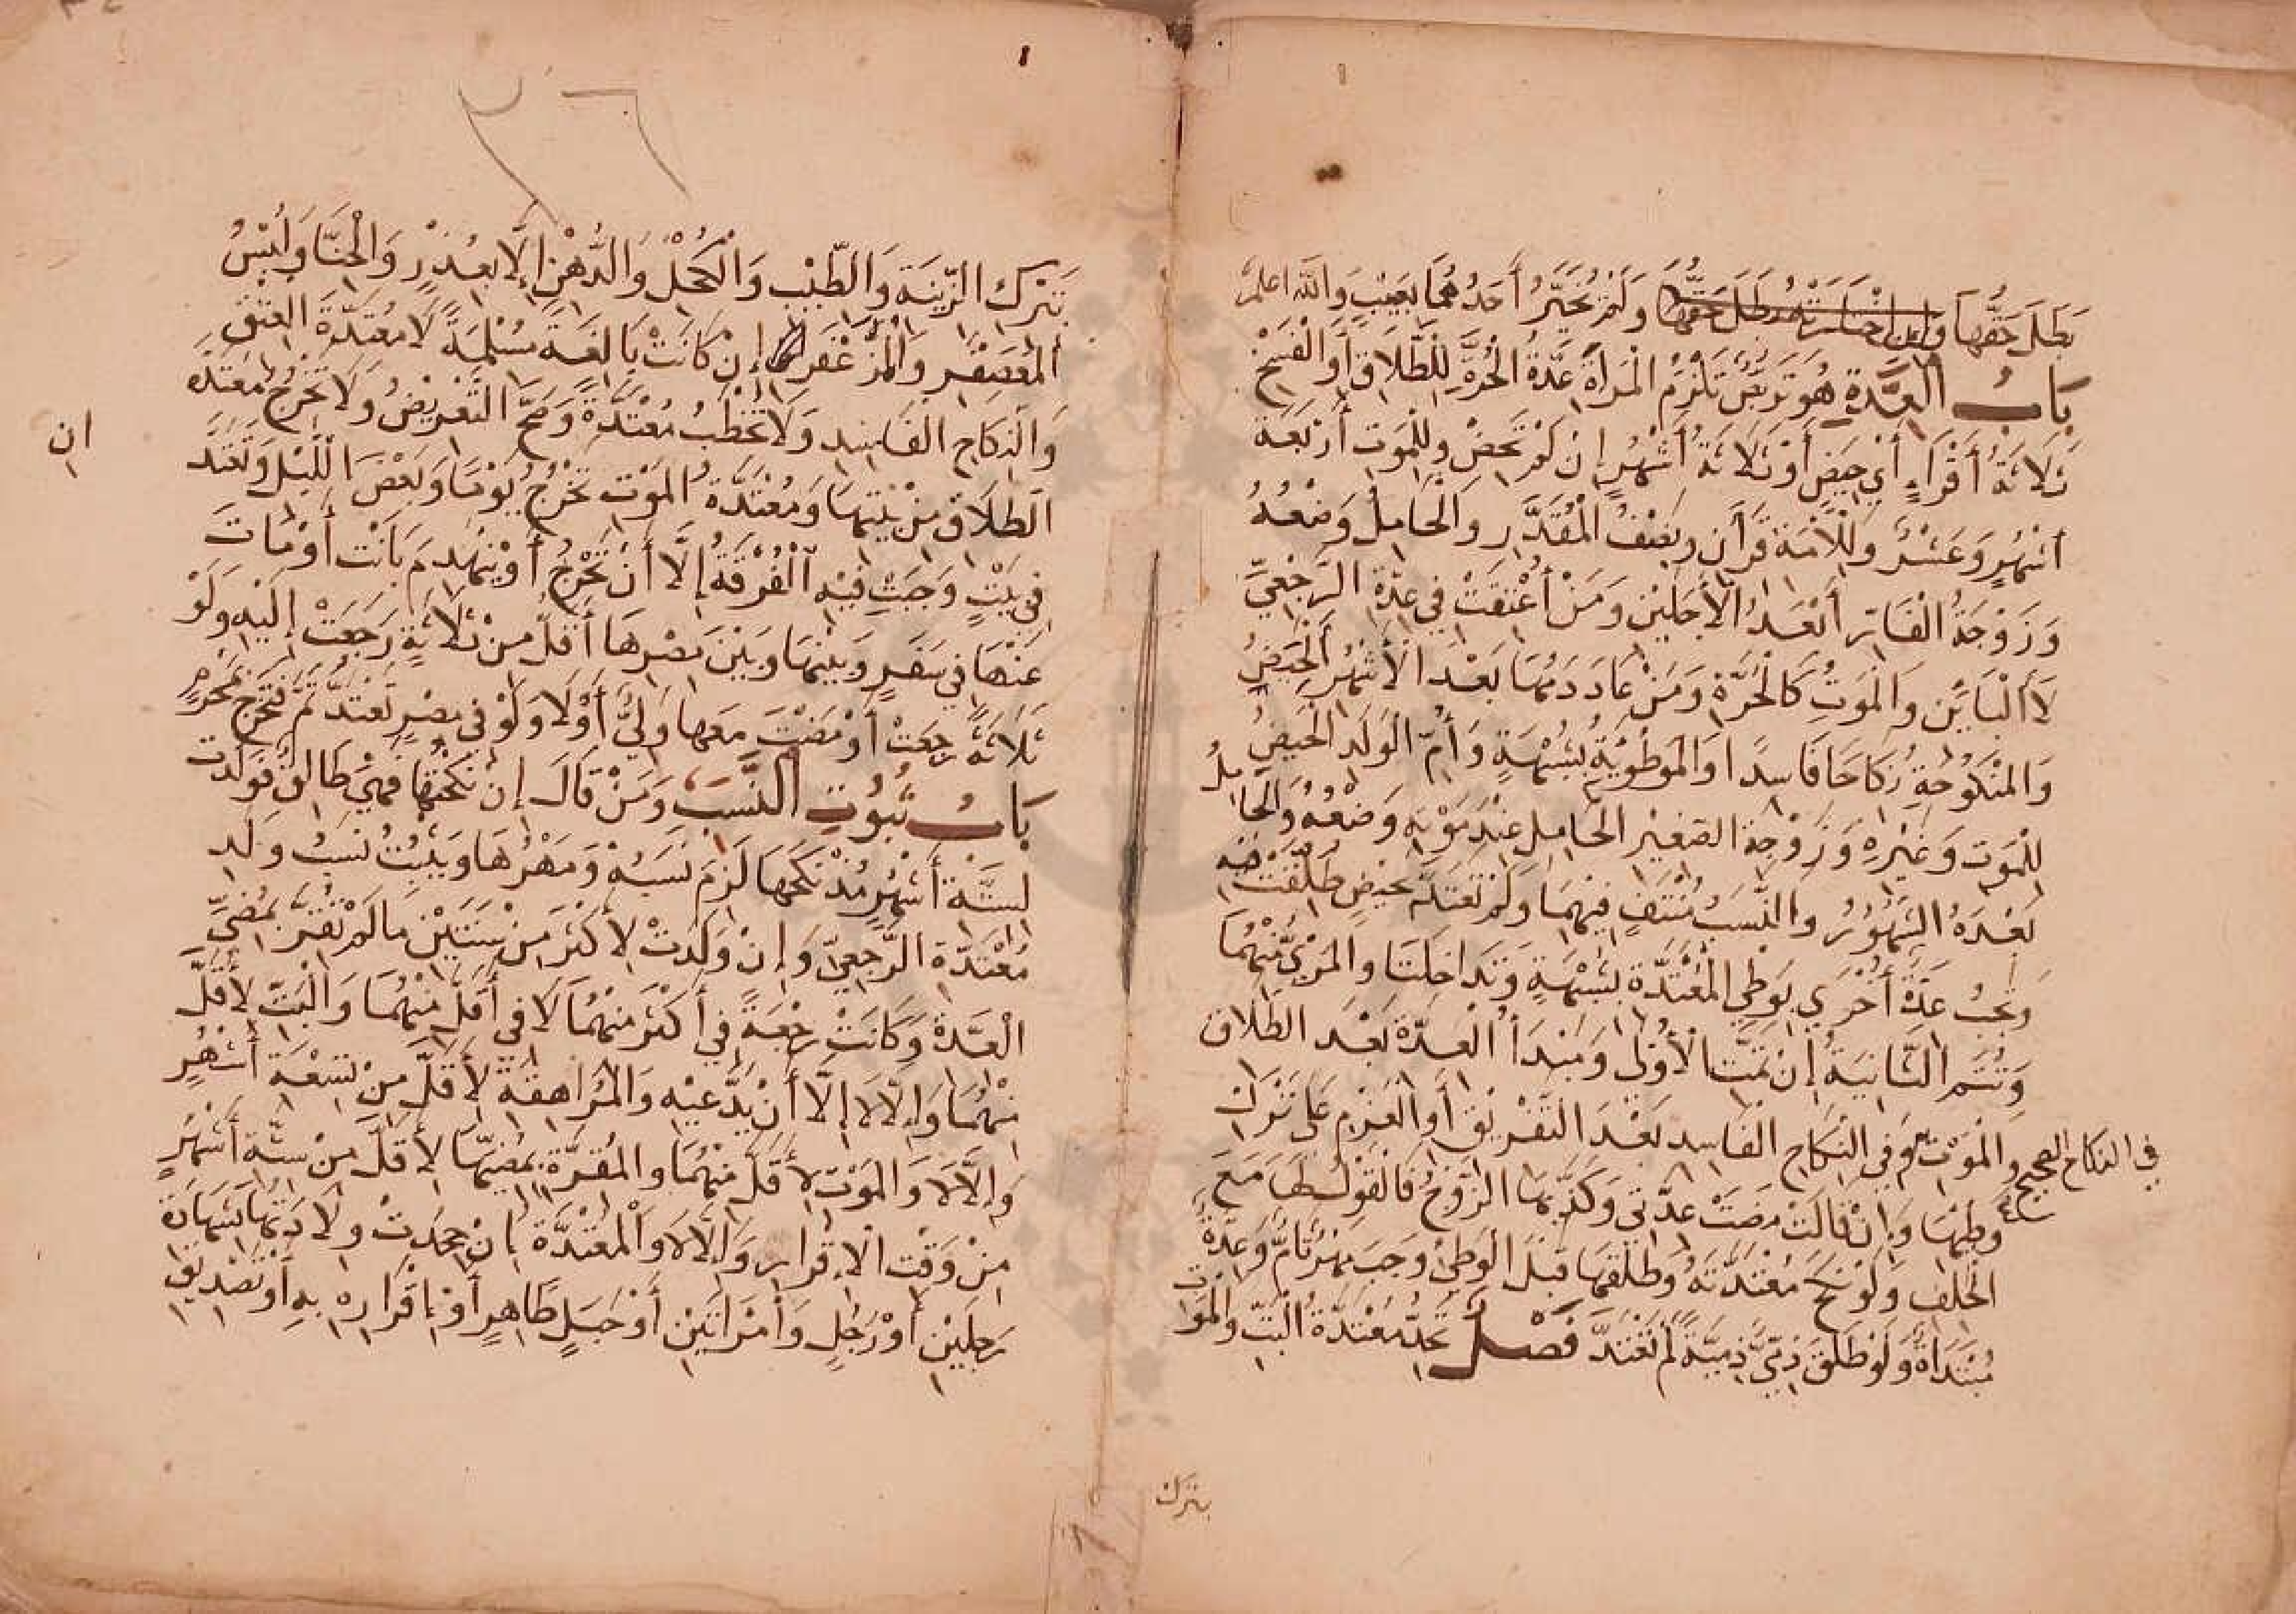 بَطَلَ حَقُّهَا وان اختارته بطل حقها وَلَمْ يُخَيَّرْ أَحَدُهُمَا بِعَيْبٍ وَاللّٰه اعلم
بَابُ الْعِدَّةِ هُوَ تَرَبُّصٌ تَلْزَمُ الْمَرْأَةَ عِدَّةُ الْحُرَّةِ لِلطَّلَاقِ أَوِ الْفَسْخِ
ثَلَاثَةُ أَقْرَاءٍ أَيْ حِيَضٍ أَوْ ثَلَاثَةُ أَشْهُرٍ إِنْ لَمْ تَحِضْ وَلِلْمَوْتِ أَرْبَعَةُ
أَشْهُرٍ وَعَشْرٌ وَلِلْأَمَةِ قَرْآنِ وَنِصْفُ الْمُقَدَّرِ وَالْحَامِلُ وَضْعُهُ
وَزَوْجَةُ الْفَارِّ أَبْعَدُ الْأَجَلَيْنِ وَمَنْ أُعْتِقَتْ فِي عِدَّةِ الرَّجْعِيِّ
لَا الْبَايِنِ وَالْمَوْتِ كَالْحُرَّةِ وَمَنْ عَادَ دَمُهَا بَعْدَ الْأَشْهُرِ الْحِيَضُ
وَالْمَنْكُوحَةِ نِكَاحًا فَاسِدًا وَالْمَوْطُوئَةِ بِشُبْهَةٍ وَأُمِّ الْوَلَدِ الْحِيَضُ
لِلْمَوْتِ وَغَيْرِهِ وَزَوْجَةِ الصَّغِيرِ الْحَامِلِ عِنْدَ مَوْتِهِ وَضْعُهُ وَالْحَامِلُ
بَعْدَهُ الشُّهُورُ وَالنَّسَبُ مُنْتَفٍ فِيهِمَا وَلَمْ تَعْتَدَّ بِحَيْضٍ طُلِّقَتْ فيه
وَتَجِبُ عِدَّةٌ أُخْرَى بِوَطْيِ الْمُعْتَدَّةِ بِشُبْهَةٍ وَتَدَاخَلَتَا وَالْمَرْئِيُّ مِنْهُمَا
وَتُتِمُّ الثَّانِيَةُ إِنْ تَمَّتِ الْأُولَى وَمَبْدَأُ الْعِدَّةِ بَعْدَ الطَّلَاقِ
وَالْمَوْتِ وَفِي النِّكَاحِ الْفَاسِدِ بَعْدَ التَّفْرِيقِ أَوِ الْعَزْمِ عَلَى تَرْكِ
في النكاح الصحيح
وَطْئِهَا وَإِنْ قَالَتْ مَضَتْ عِدَّتِي وَكَذَّبَهَا الزَّوْجُ فَالْقَوْلُ لَهَا مَعَ
الْحَلْفِ وَلَوْ نَكَحَ مُعْتَدَّتَهُ وَطَلَّقَهَا قَبْلَ الْوَطْيِ وَجَبَ مَهْرٌ تَامٌّ وَعِدَّةٌ
مُبْتَدَأَةٌ وَلَوْ طَلَّقَ ذِمِّيٌّ ذِمِّيَّةً لَمْ تَعْتَدَّ فَصْلٌ تَحِدُّ مُعْتَدَّةُ الْبَتِّ وَالْمَوْتِ
بترك
٢٦
بِتَرْكِ الزِّينَةِ وَالطِّيبِ وَالْكُحْلِ وَالدُّهْنِ إِلَّا بِعُذْرٍ وَالْحِنَّا وَلُبْسِ
الْمُعَصْفَرِ وَالْمُزَعْفَرِ إِنْ كَانَتْ بَالِغَةً مُسْلِمَةً لَا مُعْتَدَّةَ الْعِتْقِ
وَالنِّكَاحِ الْفَاسِدِ وَلَا تُخْطَبُ مُعْتَدَّةٌ وَصَحَّ التَّعْرِيضُ وَلَا تَخْرُجُ مُعْتَدَّةُ
الطَّلَاقِ مِنْ بَيْتِهَا وَمُعْتَدَّةُ الْمَوْتِ تَخْرُجُ يَوْمًا وَبَعْضَ اللَّيْلِ وَتَعْتَدُّ
ان
فِي بَيْتٍ وَجَبَتْ فِيهِ الْفُرْقَةُ إِلَّا أَنْ تُخْرَجَ أَوْ يَنْهَدِمَ بَانَتْ أَوْ مَاتَ
عَنْهَا فِي سَفَرٍ وَبَيْنَهَا وَبَيْنَ مِصْرِهَا أَقَلُّ مِنْ ثَلَاثَةٍ رَجَعَتْ إِلَيْهِ وَلَوْ
ثَلَاثَةً رجعَتْ أَوْ مَضَتْ مَعَهَا وَلِيٌّ أَوْ لَا وَلَوْ فِي مِصْرٍ تَعْتَدُّ ثَمَّ فَتَخْرُجُ بِمَحْرَمٍ
بَابُ ثُبُوتِ النَّسَبِ وَمَنْ قَالَ إِنْ نَكَحْتُهَا فَهِيَ طَالِقٌ فَوَلَدَتْ
لِسِتَّةِ أَشْهُرٍ مُذْ نَكَحَهَا لَزِمَ نَسَبُهُ وَمَهْرُهَا وَيَثْبُتُ نَسَبُ وَلَدِ
مُعْتَدَّةِ الرَّجْعِيِّ وَإِنْ وَلَدَتْ لِأَكْثَرَ مِنْ سَنَتَيْنِ مَا لَمْ تُقِرَّ بِمُضِيِّ
الْعِدَّةِ وَكَانَتْ رَجْعَةً فِي أَكْثَرَ مِنْهُمَا لَا فِي أَقَلَّ مِنْهُمَا وَالْبَتِّ لِأَقَلَّ
مِنْهُمَا وَإِلَّا لَا إِلَّا أَنْ يَدَّعِيَهُ وَالْمُرَاهِقَةُ لِأَقَلَّ مِنْ تِسْعَةِ أَشْهُرٍ
وَإِلَّا لَا وَالْمَوْتِ لِأَقَلَّ مِنْهُمَا وَالْمُقِرَّةِ بِمُضِيِّهَا لِأَقَلَّ مِنْ سِتَّةِ أَشْهُرٍ
مِنْ وَقْتِ الْإِقْرَارِ وَإِلَّا لَا وَالْمُعْتَدَّةِ إِنْ جُحِدَتْ وِلَادَتُهَا بِشَهَادَةِ
رَجُلَيْنِ أَوْ رَجُلٍ وَامْرَأَتَيْنِ أَوْ حَبَلٍ ظَاهِرٍ أَوْ إِقْرَارِهِ بِهِ أَوْ تَصْدِيقِ